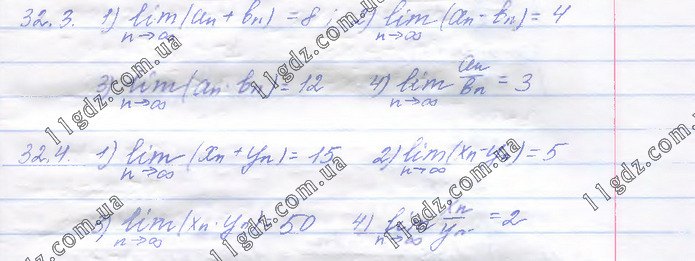 32.3. 1) lim (an + bn) = 8; 2) lim (an - bn) = 4
n→∞ n→∞
3) lim (an · bn) = 12 4) lim an/bn = 3
n→∞ n→∞
32.4. 1) lim (xn + yn) = 15 2) lim (xn - yn) = 5
n→∞ n→∞
3) lim (xn · yn) = 50 4) lim xn/yn = 2
n→∞ n→∞
11gdz.com.ua
11gdz.com.ua
11gdz.com.ua
11gdz.com.ua
11gdz.com.ua
11gdz.com.ua